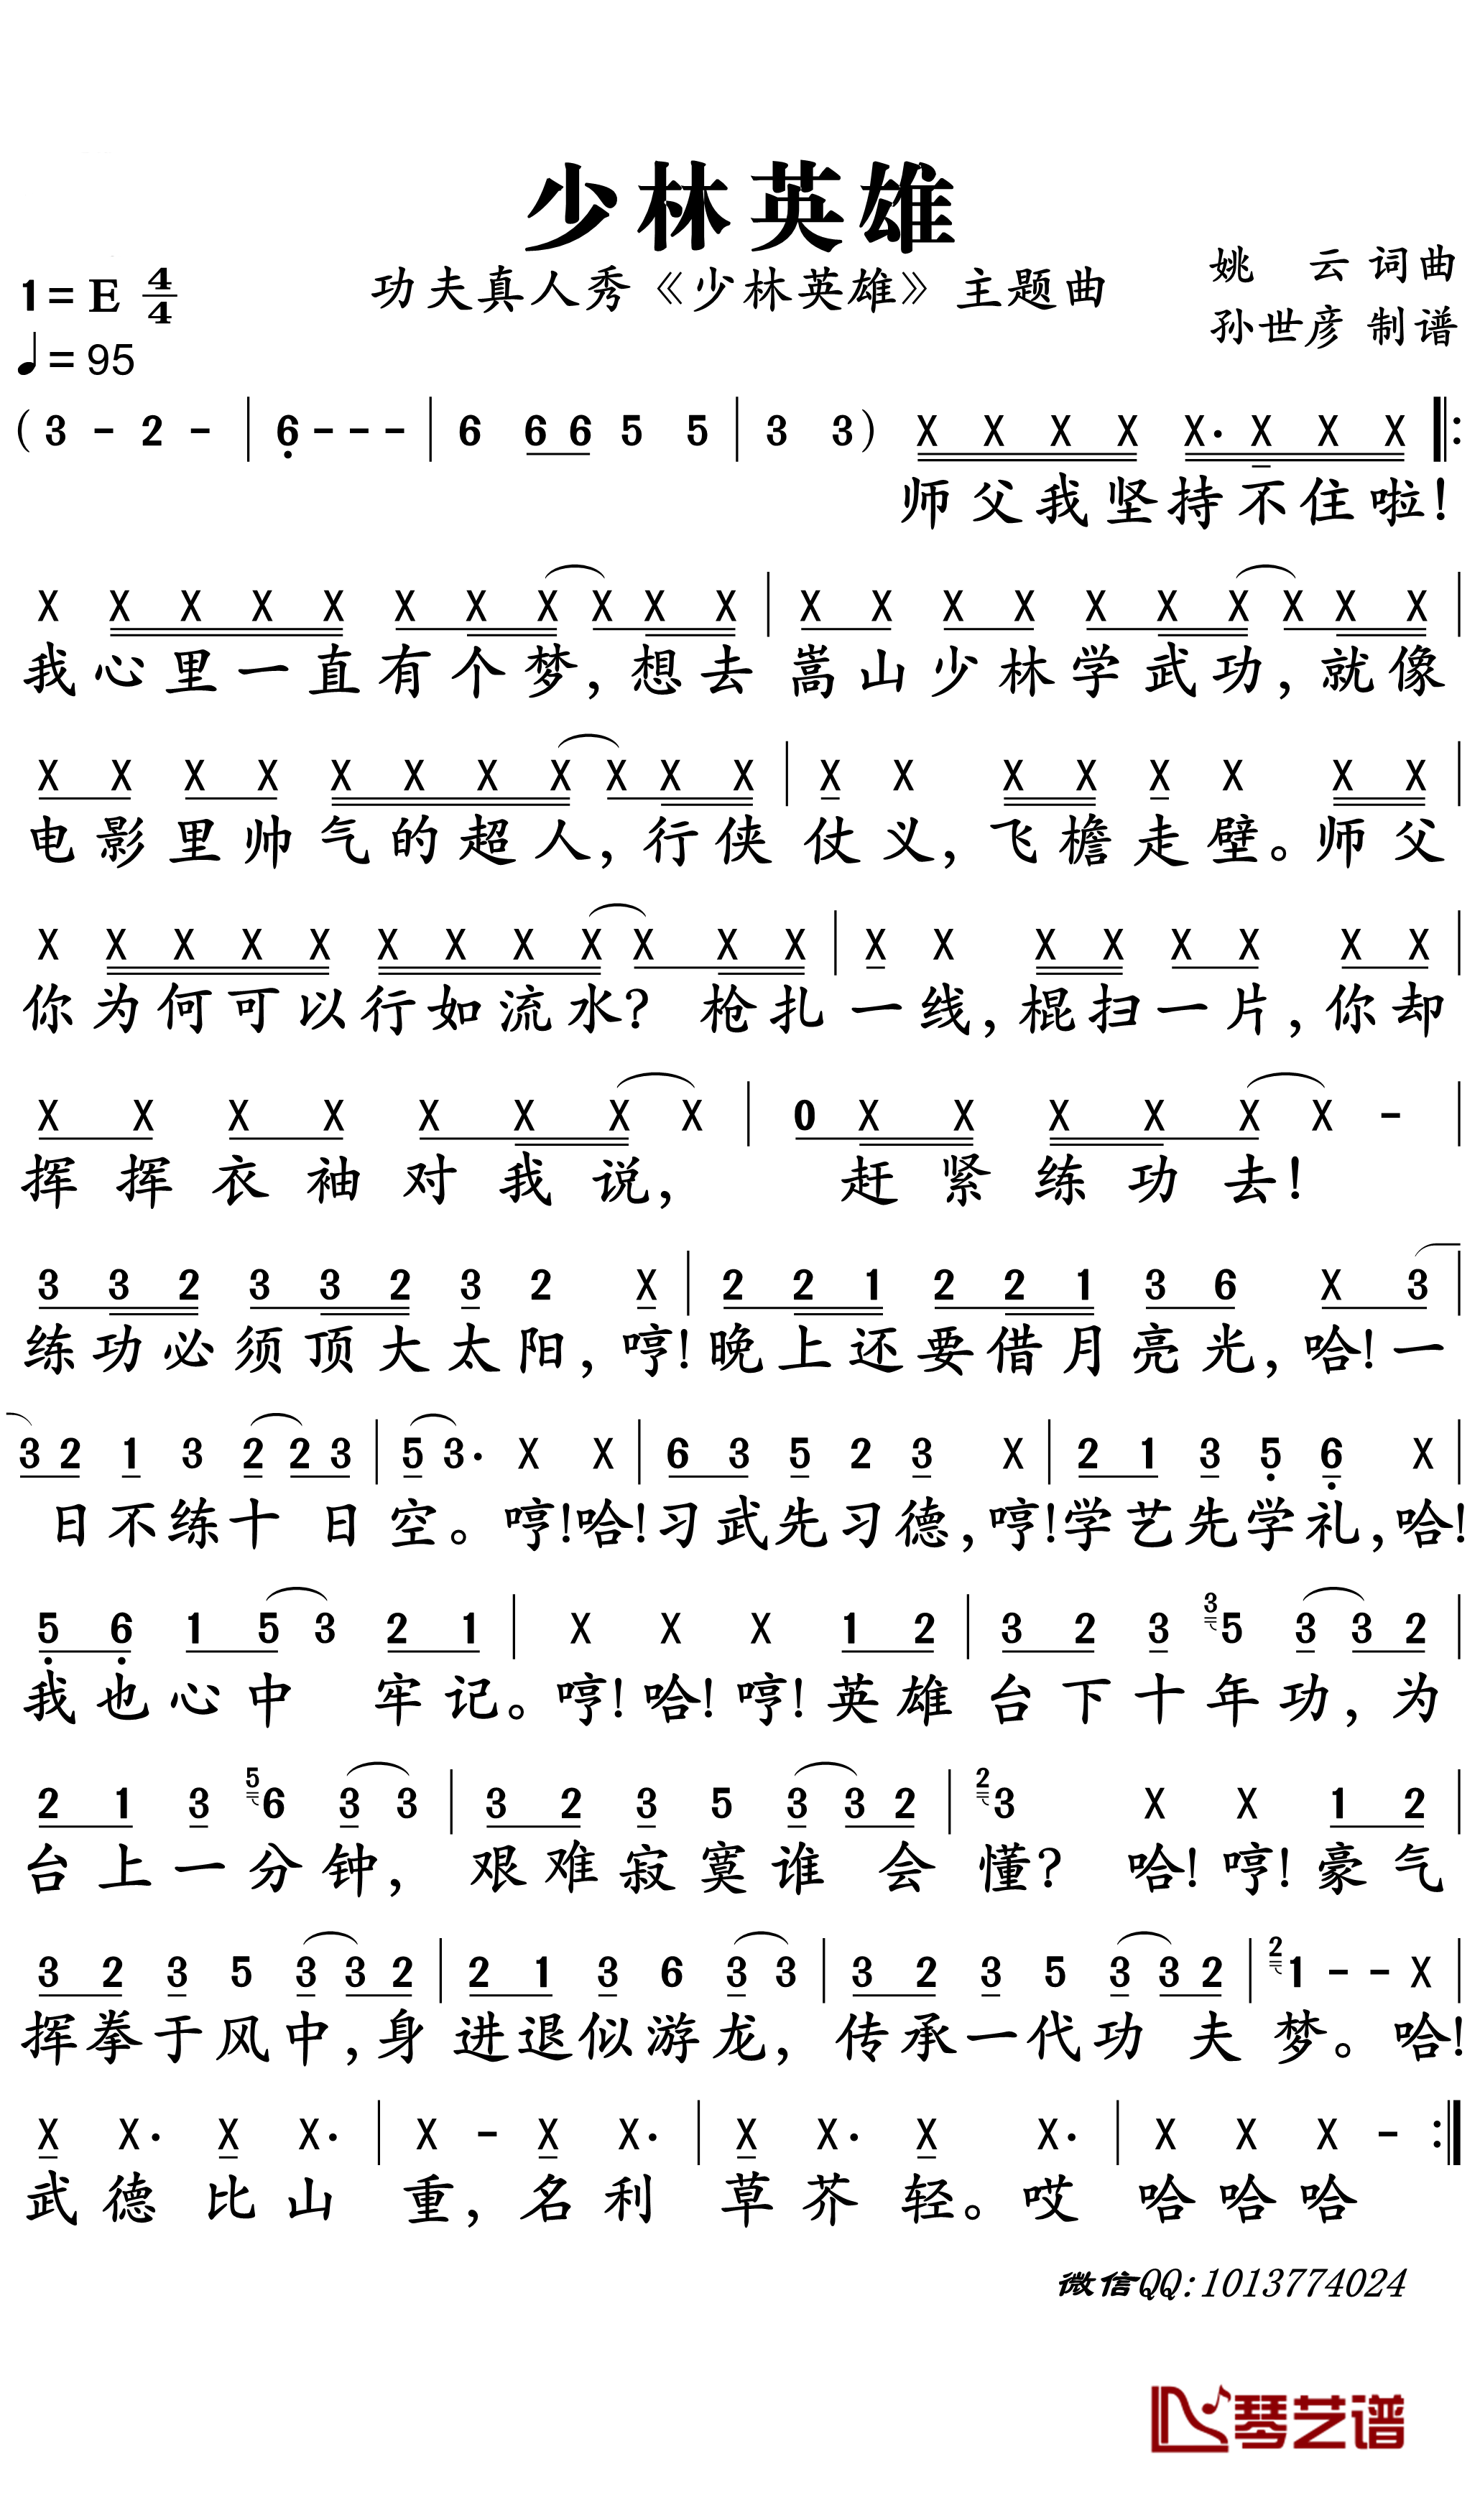 少林英雄
1=E 4/4
功夫真人秀《少林英雄》主题曲
姚 云 词曲
孙世彦 制谱
♩=95
(3 - 2 - | 6 - - - | 6 6 6 5 5 | 3 3) X X X X X· X X X ‖:
师父我坚持不住啦!
X X X X X X X X X X X | X X X X X X X X X X |
我心里一直有个梦,想去嵩山少林学武功,就像
X X X X X X X X X X X | X X X X X X X X |
电影里帅气的超人,行侠仗义,飞檐走壁。师父
X X X X X X X X X X X X | X X X X X X X X |
你为何可以行如流水? 枪扎一线,棍扫一片,你却
X X X X X X X X | 0 X X X X X X - |
挥挥衣袖对我说, 赶紧练功去!
3 3 2 3 3 2 3 2 X | 2 2 1 2 2 1 3 6 X 3 |
练功必须顶大太阳,哼!晚上还要借月亮光,哈!一
3 2 1 3 2 2 3 | 5 3· X X | 6 3 5 2 3 X | 2 1 3 5 6 X |
日不练十日空。哼!哈!习武先习德,哼!学艺先学礼,哈!
5 6 1 5 3 2 1 | X X X 1 2 | 3 2 3 3 5 3 3 2 |
我也心中 牢记。哼!哈!哼!英雄台下十年功,为
2 1 3 5 6 3 3 | 3 2 3 5 3 3 2 | 2 3 X X 1 2 |
台上一分钟, 艰难寂寞谁会懂? 哈!哼!豪气
3 2 3 5 3 3 2 | 2 1 3 6 3 3 | 3 2 3 5 3 3 2 | 2 1 - - X |
挥拳于风中,身进退似游龙, 传承一代功夫梦。哈!
X X· X X· | X - X X· | X X· X X· | X X X - :‖
武德比山重,名利草芥轻。哎 哈哈哈
微信QQ:1013774024
琴艺谱